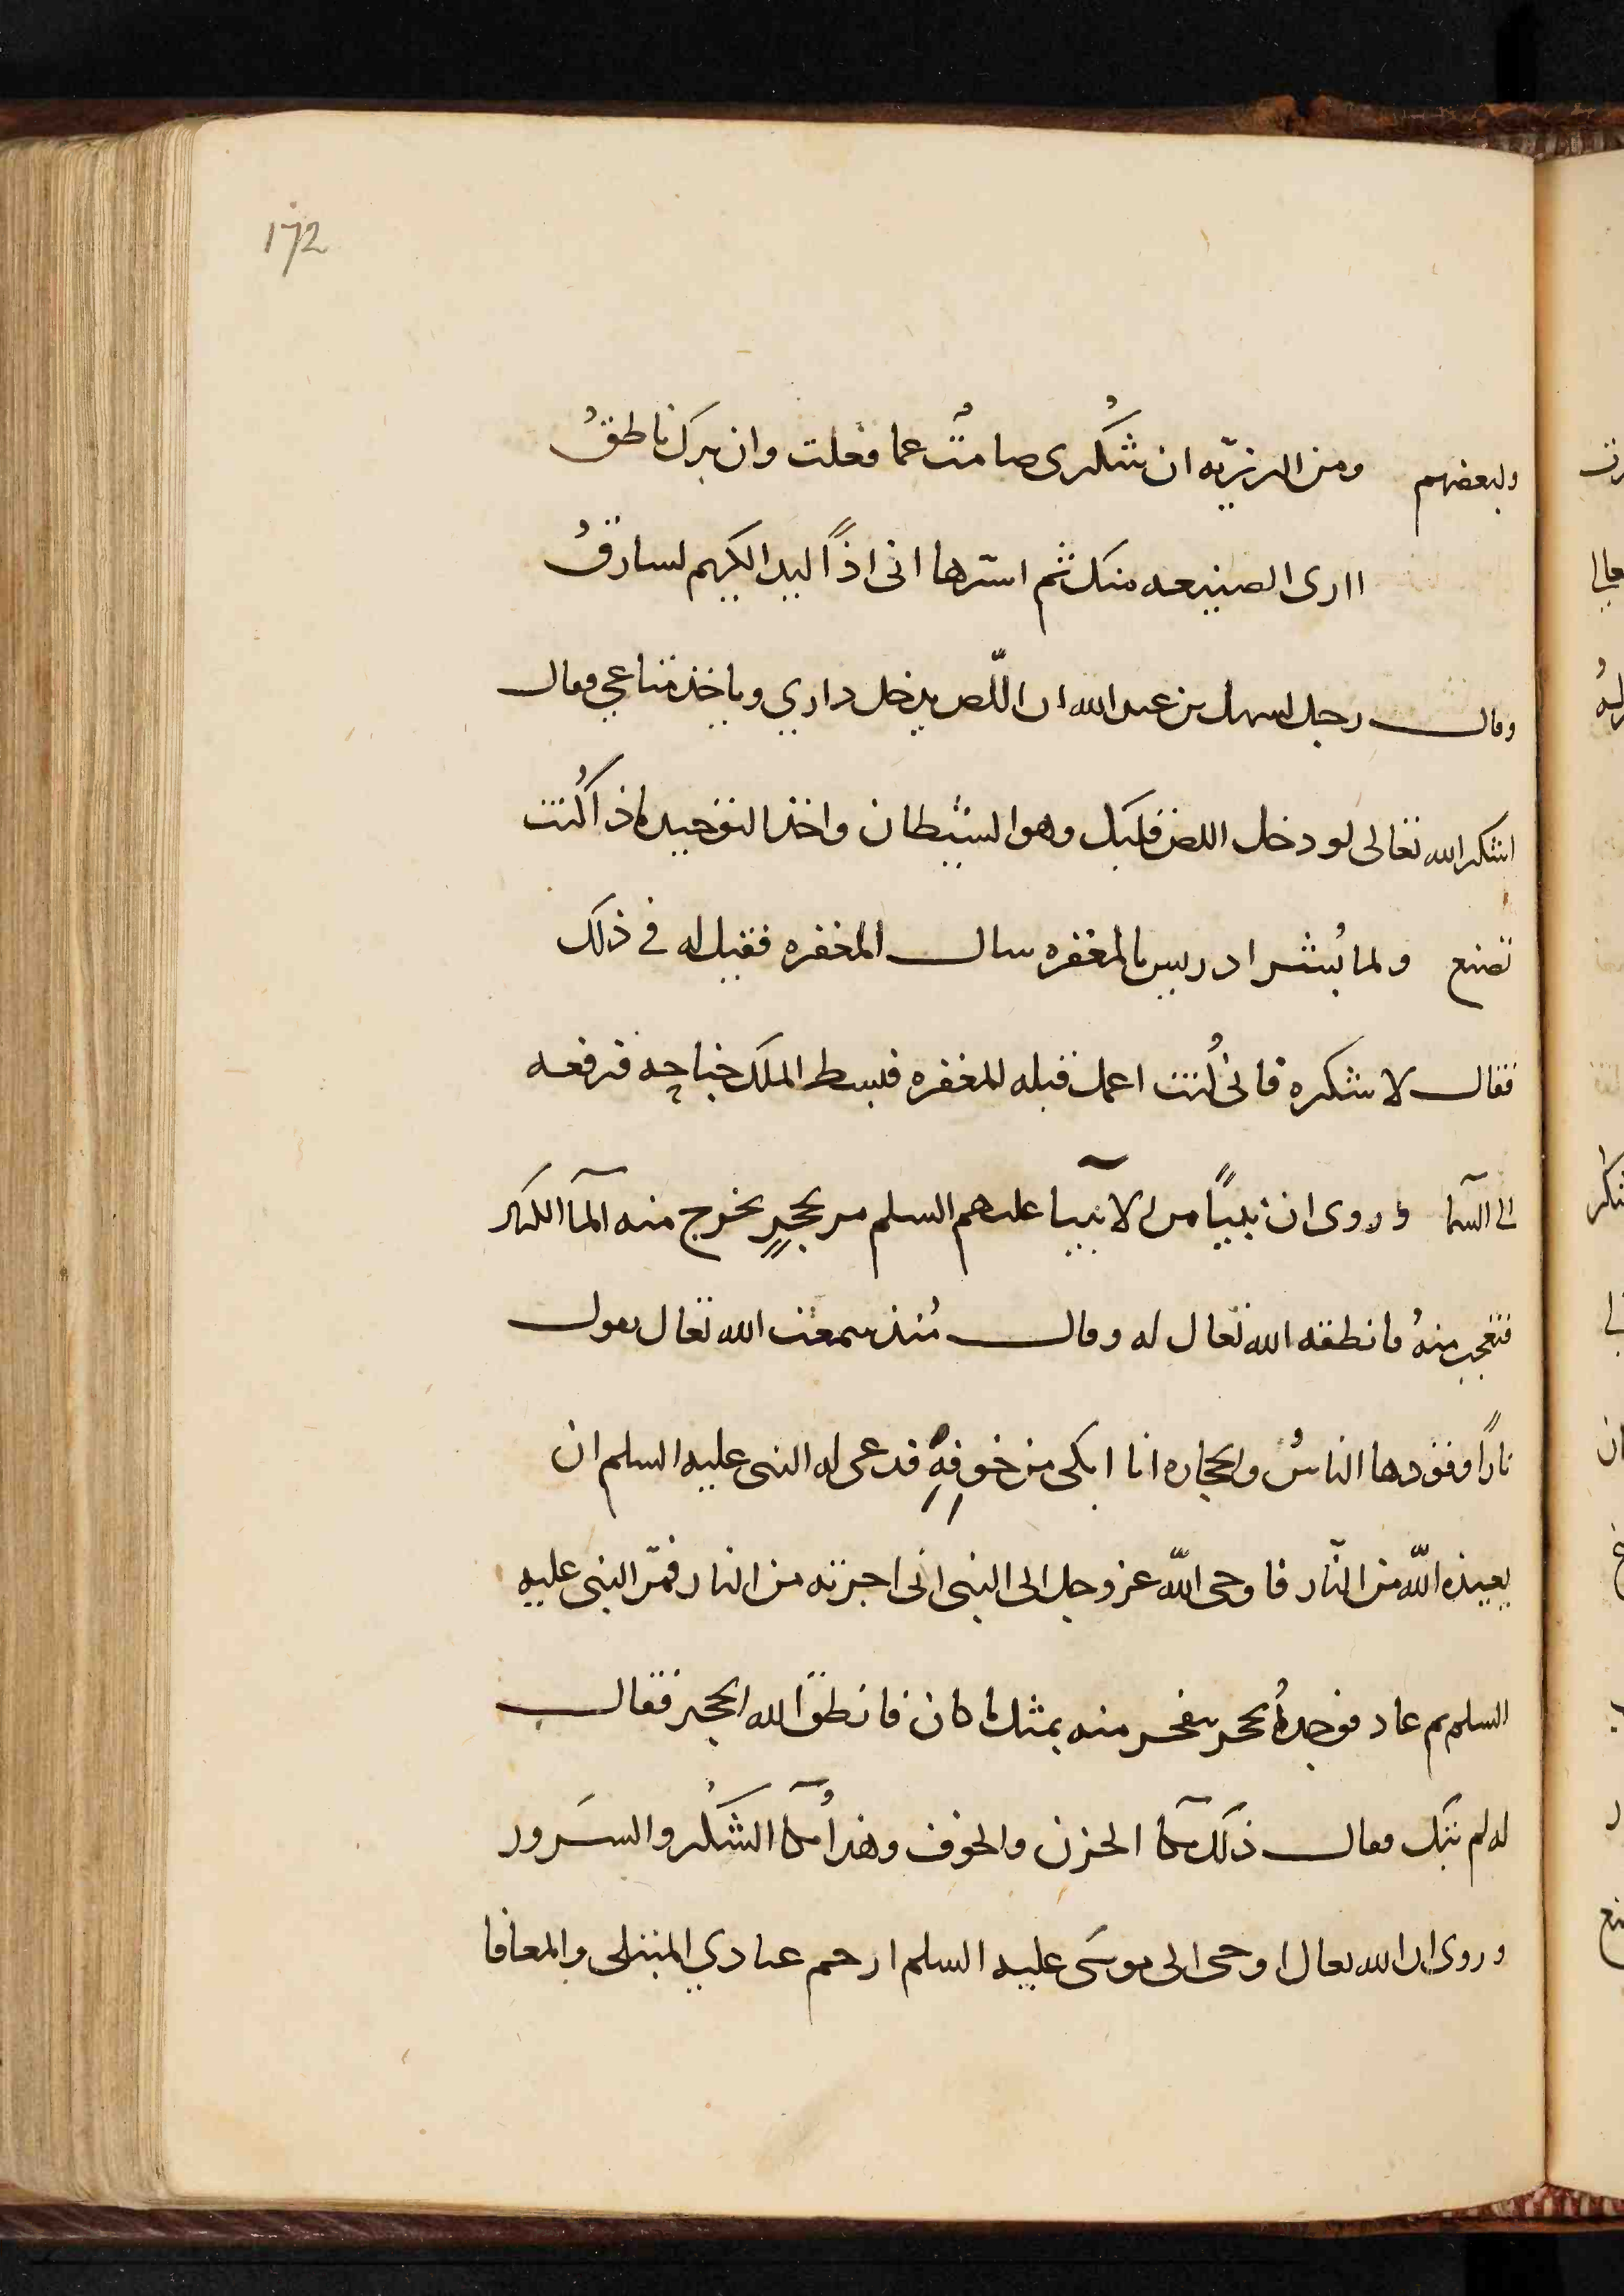 172
ولبعضهم ومن الرزيّه ان شُكرى صامتٌ عما فعلت وان برك ناطقُ
اارى الصنيعه منك ثم استرها انى اذًا ليد الكريم لسارقُ
وقال رجل لسهل بن عبد الله ان اللّص يدخل داري وياخذ متاعي فقال
اشكر الله تعالى لو دخل اللص قلبك وهو الشيطان واخذ التوحيد ماذا كُنت
تصنع ولما بُشر ادريس بالمغفره سال المغفره فقيل له فى ذلك
فقال لاشكره فانى كُنت اعمل قبله للمغفره فبسط الملك جناحه فرفعه
الى السمآ وروى ان نبيًا من الانبيآ عليهم السلم مر بحجرٍ يخرج منه المآ الكثير
فتعجب منهُ فانطقه الله تعالى له وقال مُنذ سمعت الله تعالى يقول
نارًا وقودها الناسُ والحجاره انا ابكى من خوفهِ فدعى له النبى عليه السلم ان
يعيذه اللّه من النّار فاوحى اللّه عز وجل الى النبى انى اجرته من النار فمرّ النبى عليه
السلم ثم عاد فوجدهُ يحر سفحر منه بمثل ما كان فانطق الله الحجر فقال
له لم تبك فقال ذلك بكآ الحزن والخوف وهذا بكآُ الشكُر والسَرور
وروى ان الله تعالى اوحى الى موسَى عليه السلم ارحم عبادي المبتلى والمعافا